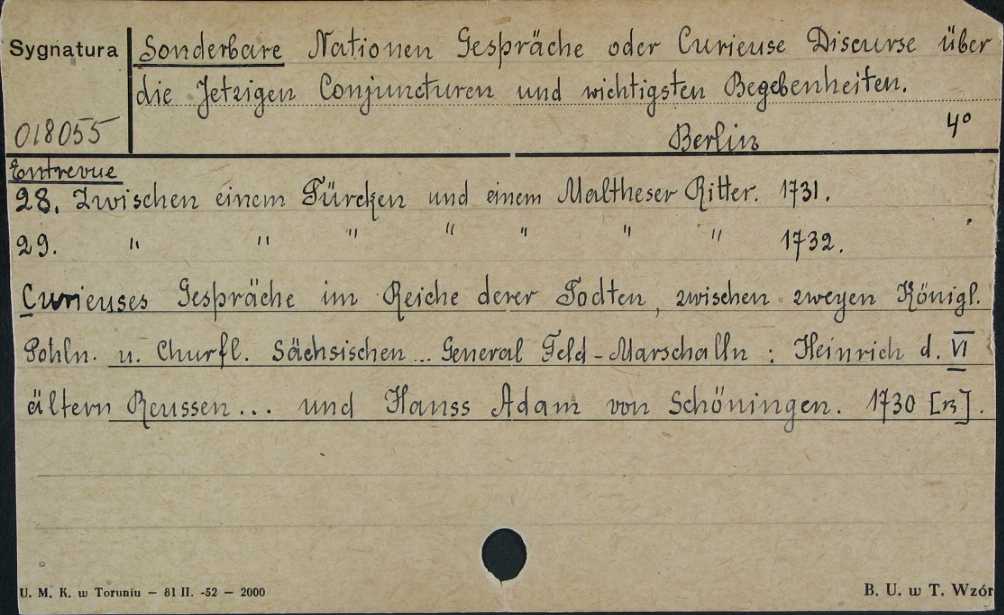 Sygnatura
018055
Sonderbare Nationen Gespräche oder Curieuse Discurse über
die Jetzigen Conjuncturen und wichtigsten Begebenheiten.
Berlin 4°
Entrevue
28. Zwischen einem Türcken und einem Maltheser Ritter. 1731.
29. " " " " " " " 1732.
Curieuses Gespräche im Reiche derer Todten, zwischen zweyen Königl.
Pohln. u. Churfl. Sächsischen... General Feld-Marschalln: Heinrich d. VI
ältern Reussen... und Hanss Adam von Schöningen. 1730 [B].
U. M. K. w Toruniu — 81 II. -52 — 2000
B. U. w T. Wzór